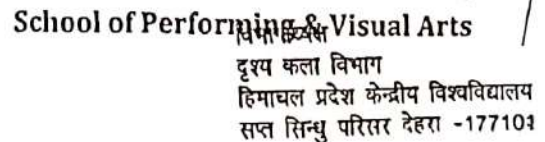 School of Performing & Visual Arts
विभागाध्यक्ष
दृश्य कला विभाग
हिमाचल प्रदेश केन्द्रीय विश्वविद्यालय
सप्त सिन्धु परिसर देहरा -177101